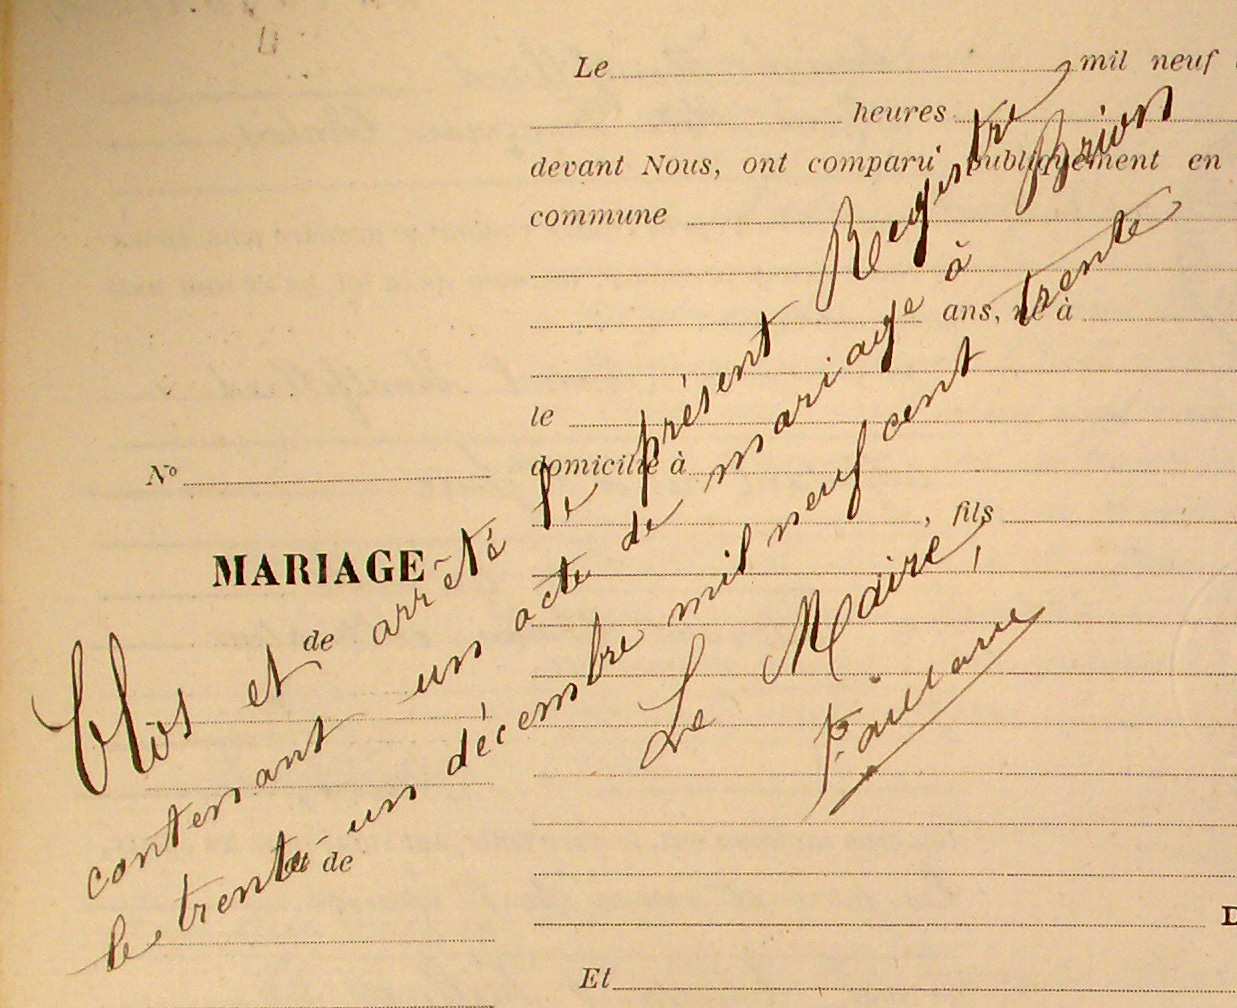 Le mil neuf
heures
devant Nous, ont comparu publiquement en
commune
ans, né à
le
N° domicilié à
, fils
MARIAGE
de
et de
Et
Clôs et arrêté le présent Registre
contenant un acte de mariage à Brion
le trente-un décembre mil neuf cent trente
Le Maire,